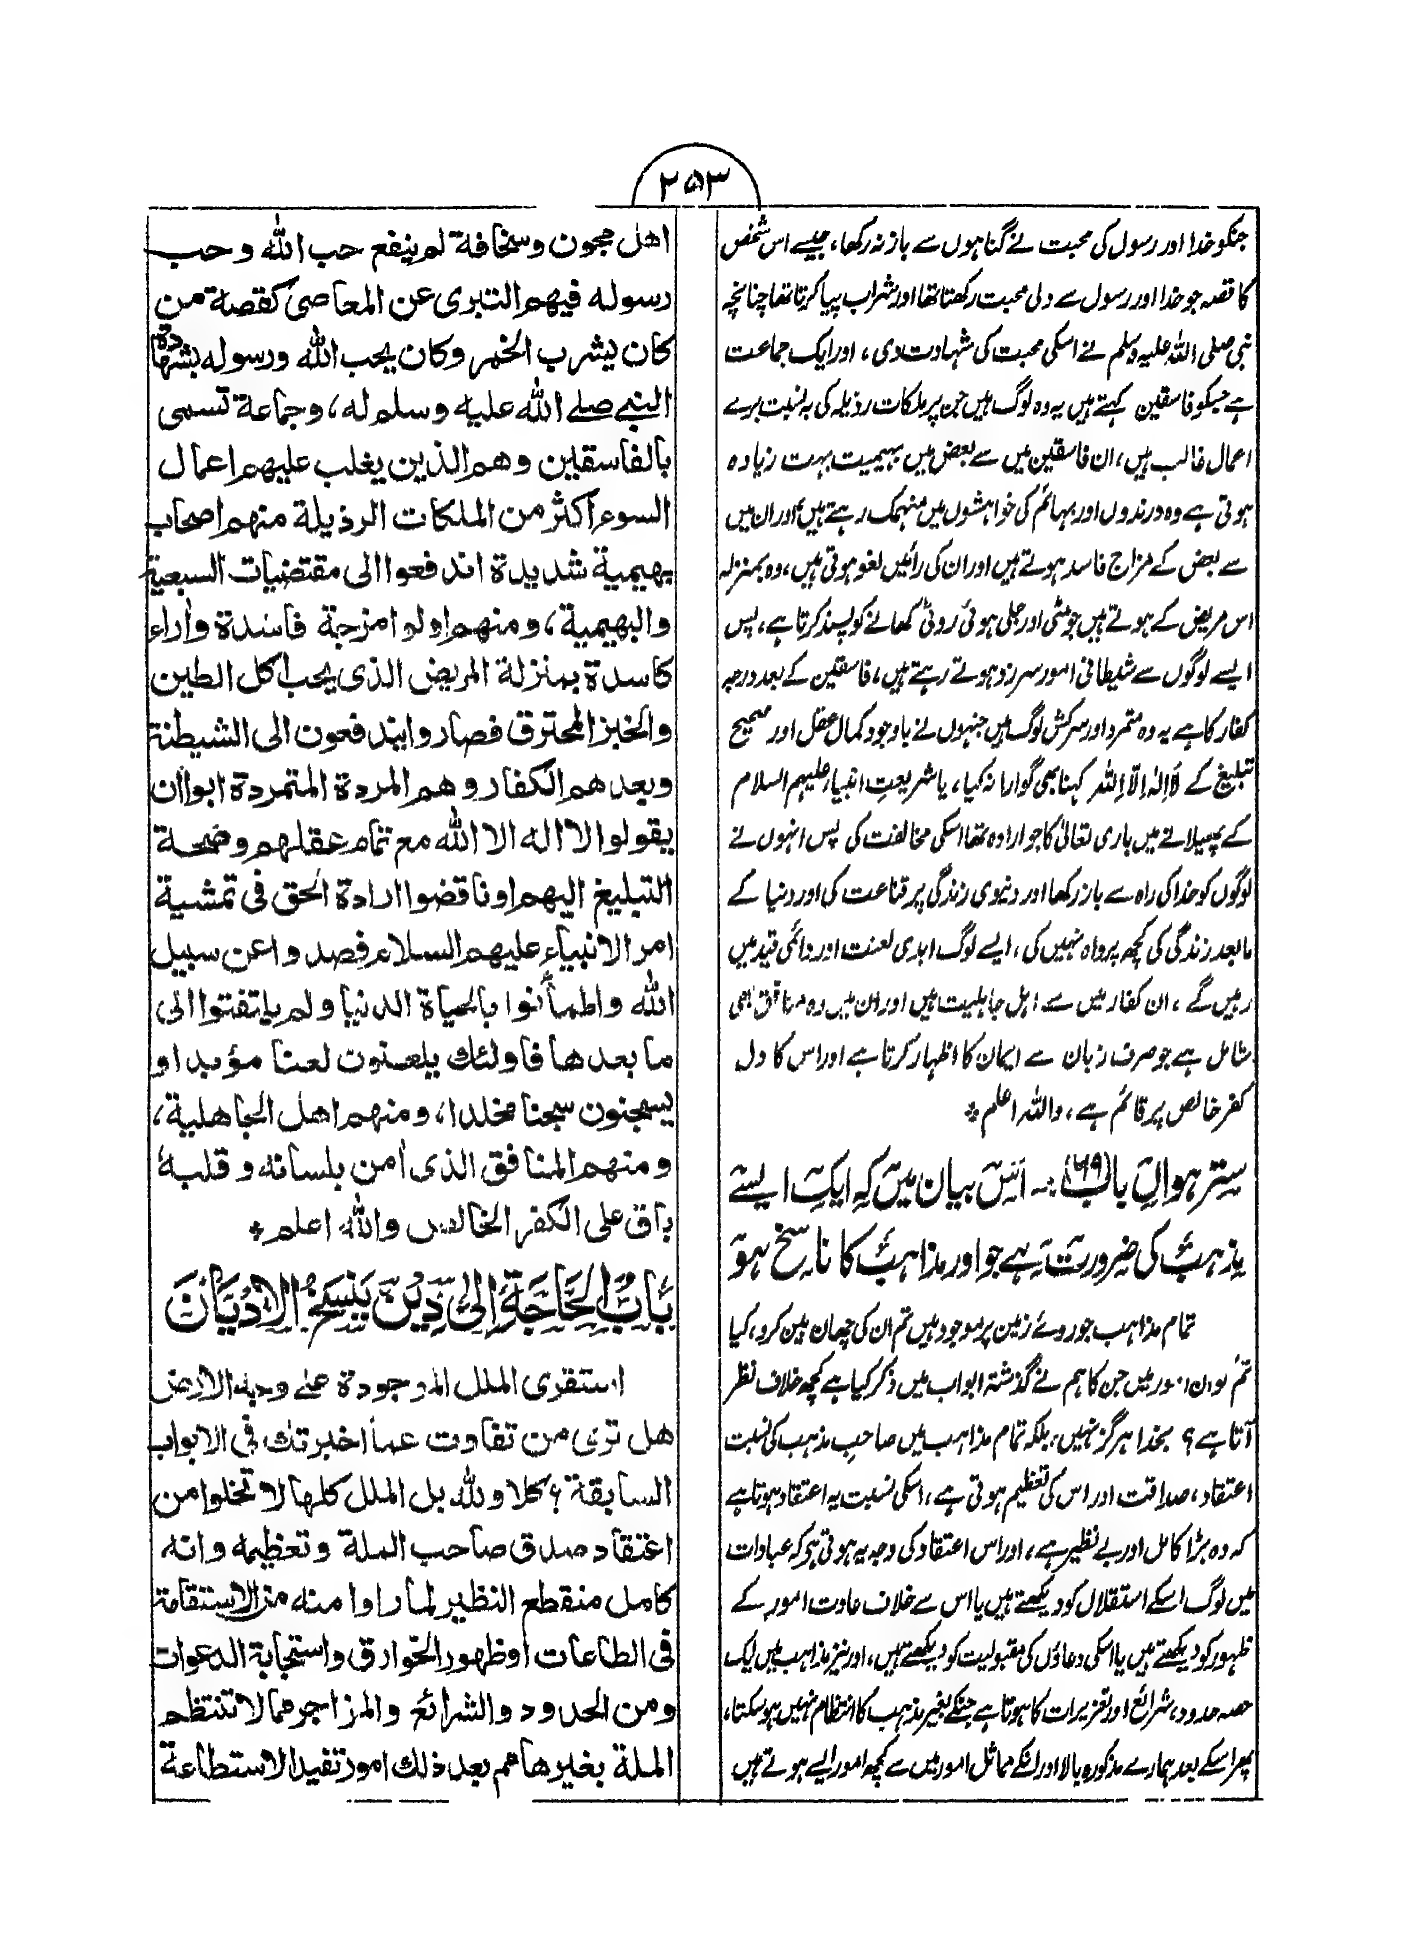 ۲۵۳
جنکو خدا اور رسول کی محبت نے گناہوں سے باز نہ رکھا، جیسے اس شخص
کا قصہ جو خدا اور رسول سے دلی محبت رکھتا تھا اور شراب پیا کرتا تھا چنانچہ
نبی صلی اللہ علیہ وسلم نے اسکی محبت کی شہادت دی، اور ایک جماعت
ہے جسکو فاسقین کہتے ہیں یہ وہ لوگ ہیں جن پر ملکات رذیلہ کی بہ نسبت برے
اعمال غالب ہیں، ان فاسقین میں سے بعض میں بہیمیت بہت زیادہ
ہوتی ہے وہ درندوں اور بہائم کی خواہشوں میں منہمک رہتے ہیں، اور ان میں
سے بعض کے مزاج فاسد ہوتے ہیں اور ان کی رائیں لغو ہوتی ہیں، وہ بمنزلہ
اس مریض کے ہوتے ہیں جو مٹی اور جلی ہوئی روٹی کھانے کو پسند کرتا ہے، پس
ایسے لوگوں سے شیطانی امور سرزد ہوتے رہتے ہیں، فاسقین کے بعد درجہ
کفار کا ہے یہ وہ متمرد اور سرکش لوگ ہیں جنہوں نے باوجود کمال عقل اور صحیح
تبلیغ کے لا الٰہ الّا اللہ کہنا بھی گوارا نہ کیا، یا شریعتِ انبیاء علیہم السلام
کے پھیلانے میں باری تعالیٰ کا جو ارادہ تھا اسکی مخالفت کی پس انہوں نے
لوگوں کو خدا کی راہ سے باز رکھا اور دنیوی زندگی پر قناعت کی اور دنیا کے
ما بعد زندگی کی کچھ پرواہ نہیں کی، ایسے لوگ ابدی لعنت اور دائمی قید میں
رہیں گے، ان کفار میں سے اہل جاہلیت ہیں اور ان میں وہ منافق بھی
شامل ہے جو صرف زبان سے ایمان کا اظہار کرتا ہے اور اس کا دل
کفر خالص پر قائم ہے، واللہ اعلم *
سترہواں باب (۶۹) :۔ اس بیان میں کہ ایک ایسے
مذہب کی ضرورت ہے جو اور مذاہب کا ناسخ ہو
تمام مذاہب جو روئے زمین پر موجود ہیں تم ان کی چھان بین کرو، کیا
تم کو ان امور میں جن کا ہم نے گذشتہ ابواب میں ذکر کیا ہے کچھ خلاف نظر
آتا ہے؟ بخدا ہرگز نہیں، بلکہ تمام مذاہب میں صاحبِ مذہب کی نسبت
اعتقاد، صداقت اور اس کی تعظیم ہوتی ہے، اسکی نسبت یہ اعتقاد ہوتا ہے
کہ وہ بڑا کامل اور بے نظیر ہے، اور اس اعتقاد کی وجہ یہ ہوتی ہے کہ عبادات
میں لوگ اسکے استقلال کو دیکھتے ہیں یا اس سے خلاف عادت امور کے
ظہور کو دیکھتے ہیں یا اسکی دعاؤں کی مقبولیت کو دیکھتے ہیں، اور نیز مذاہب میں ایک
حصہ حدود، شرائع اور تعزیرات کا ہوتا ہے جنکے بغیر مذہب کا انتظام نہیں ہو سکتا،
پھر اسکے بعد ہمارے مذکورہ بالا اور انکے مماثل امور میں سے کچھ امور ایسے ہوتے ہیں
اهل مجون وسخافة لم ينفع حب الله وحب
رسوله فيهم التبرى عن المعاصى كقصة من
كان يشرب الخمر وكان يحب الله ورسوله بشهادة
النبي صلى الله عليه وسلم له، وجماعة تسمى
بالفاسقين وهم الذين يغلب عليهم اعمال
السوء أكثر من الملكات الرذيلة منهم اصحاب
بهيمية شديدة اند فعوا الى مقتضيات السبعية
والبهيمية، ومنهم اولوا امزجة فاسدة وأراء
كاسدة بمنزلة المريض الذى يحب اكل الطين
والخبز المحترق فصاروا يند فعون الى الشيطنة
وبعدهم الكفار وهم المردة المتمردة ابوا أن
يقولوا لا اله الا الله مع تمام عقلهم وصحة
التبليغ اليهم او ناقضوا ارادة الحق فى تمشية
امر الانبياء عليهم السلام فصدوا عن سبيل
الله واطمأنوا بالحياة الدنيا ولم يلتفتوا الى
ما بعدها فاولئك يلعنون لعنا مؤبدا و
يسجنون سجنا مخلدا، ومنهم اهل الجاهلية،
ومنهم المنافق الذى أمن بلسانه وقلبه
باق على الكفر الخالص والله اعلم *
بَابُ الْحَاجَةِ إِلَىٰ دِيْنٍ يَنْسَخُ الْاَدْيَانَ
استقرى الملل الموجودة على وجه الارض
هل ترى من تفاوت عما اخبرتك فى الابواب
السابقة؟ كلا والله بل الملل كلها لا تخلوا من
اعتقاد صدق صاحب الملة وتعظيمه وانه
كامل منقطع النظير لما راوا منه من الاستقامة
فى الطاعات او ظهور الخوارق واستجابة الدعوات
ومن الحدود والشرائع والمزاجر مما لا تنتظم
الملة بغيرها ثم بعد ذلك امور تفيد الاستطاعة